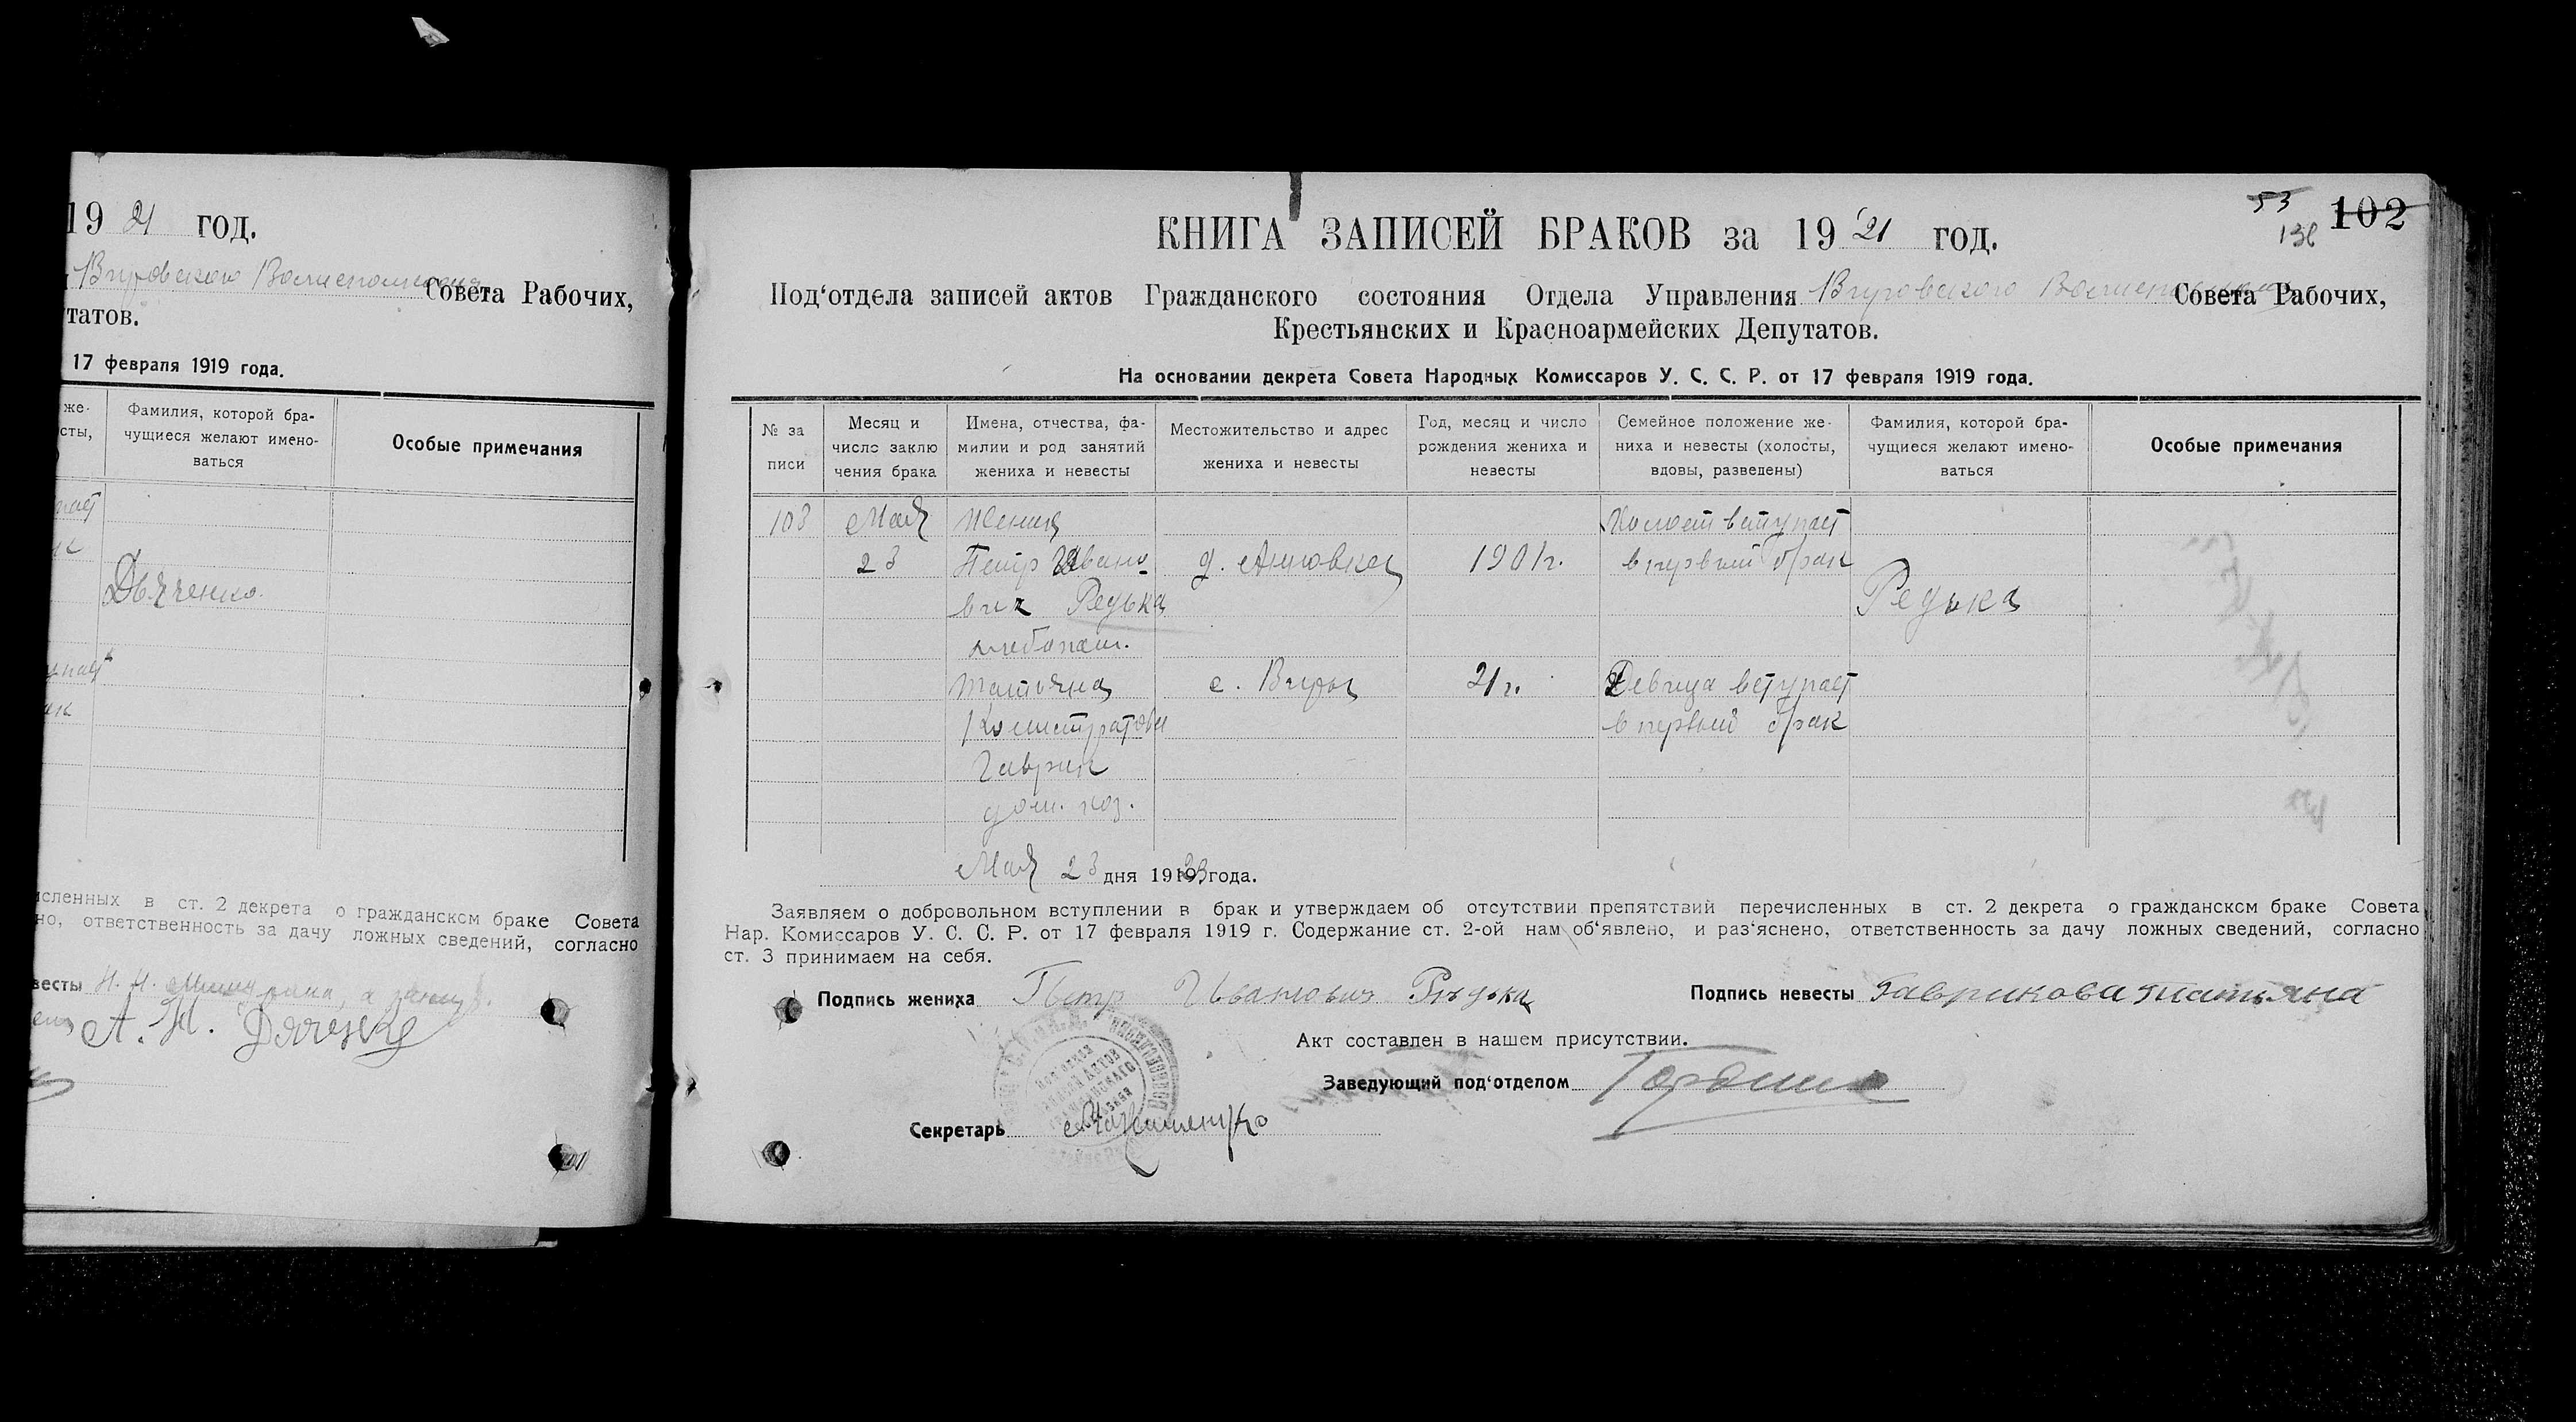 19 21 год.
Совета Рабочих,
татов.
17 февраля 1919 года.
же-
сты,
Фамилия, которой бра-
чущиеся желают имено-
ваться
Особые примечания
Дьяченко.
исленных в ст. 2 декрета о гражданском браке Совета
но, ответственность за дачу ложных сведений, согласно
весты
53
102
КНИГА ЗАПИСЕЙ БРАКОВ за 19 21 год.
Под‘отдела записей актов Гражданского состояния Отдела Управления Совета Рабочих,
Крестьянских и Красноармейских Депутатов.
На основании декрета Совета Народных Комиссаров У. С. С. Р. от 17 февраля 1919 года.
№ за
писи
Месяц и
число заклю
чения брака
Имена, отчества, фа-
милии и род занятий
жениха и невесты
Местожительство и адрес
жениха и невесты
Год, месяц и число
рождения жениха и
невесты
Семейное положение же-
ниха и невесты (холосты,
вдовы, разведены)
Фамилия, которой бра-
чущиеся желают имено-
ваться
Особые примечания
103 Мая Жених Холост вступает
23 Петр Ивано- 1901г. в первый брак
вич Редька Редька
хлебопаш.
Татьяна с. Виры 21 г. Девица вступает
в первый брак
Гаврик
дом. хоз.
Мая 23 дня 19 года.
Заявляем о добровольном вступлении в брак и утверждаем об отсутствии препятствий перечисленных в ст. 2 декрета о гражданском браке Совета
Нар. Комиссаров У. С. С. Р. от 17 февраля 1919 г. Содержание ст. 2-ой нам об‘явлено, и раз‘яснено, ответственность за дачу ложных сведений, согласно
ст. 3 принимаем на себя.
Подпись жениха Петр Иванович Подпись невесты Гаврикова Татьяна
Акт составлен в нашем присутствии.
Заведующий под‘отделом
Секретарь